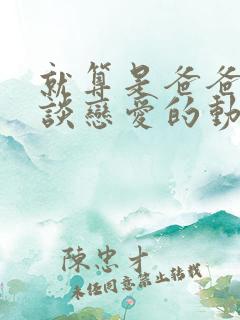 就算是爸爸
談戀愛的動
陳忠才
未經同意禁止轉載